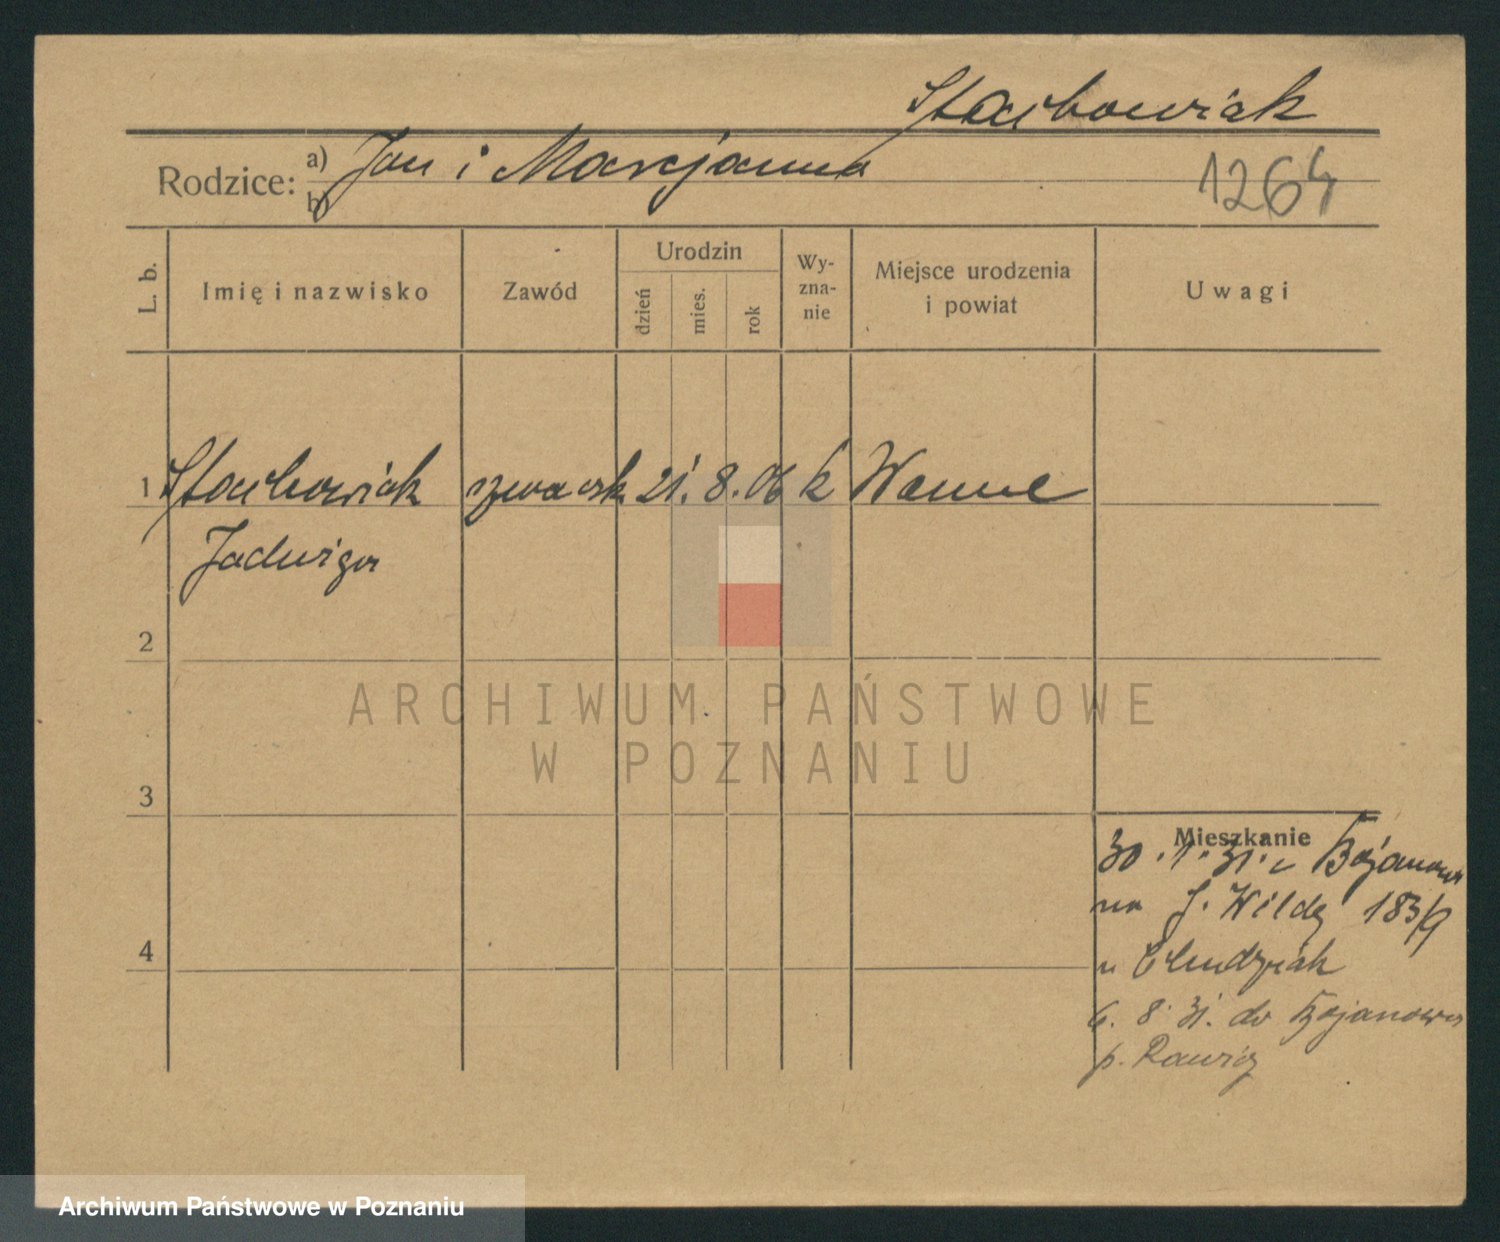 Stachowiak
Rodzice: a) Jan i Marjanna
b)
1264
L. b.
Imię i nazwisko
Zawód
Urodzin
dzień
mies.
rok
Wy-
zna-
nie
Miejsce urodzenia
i powiat
Uwagi
1 Stachowiak szwaczk 21. 8. 06 k Wanne
Jadwiga
2
3
4
ARCHIWUM PAŃSTWOWE
W POZNANIU
Mieszkanie
30. 1. 31. z Bojanowa
na G. Wildę 183/9
u
6. 8. 31. do Bojanowa
p. Rawicz
Archiwum Państwowe w Poznaniu